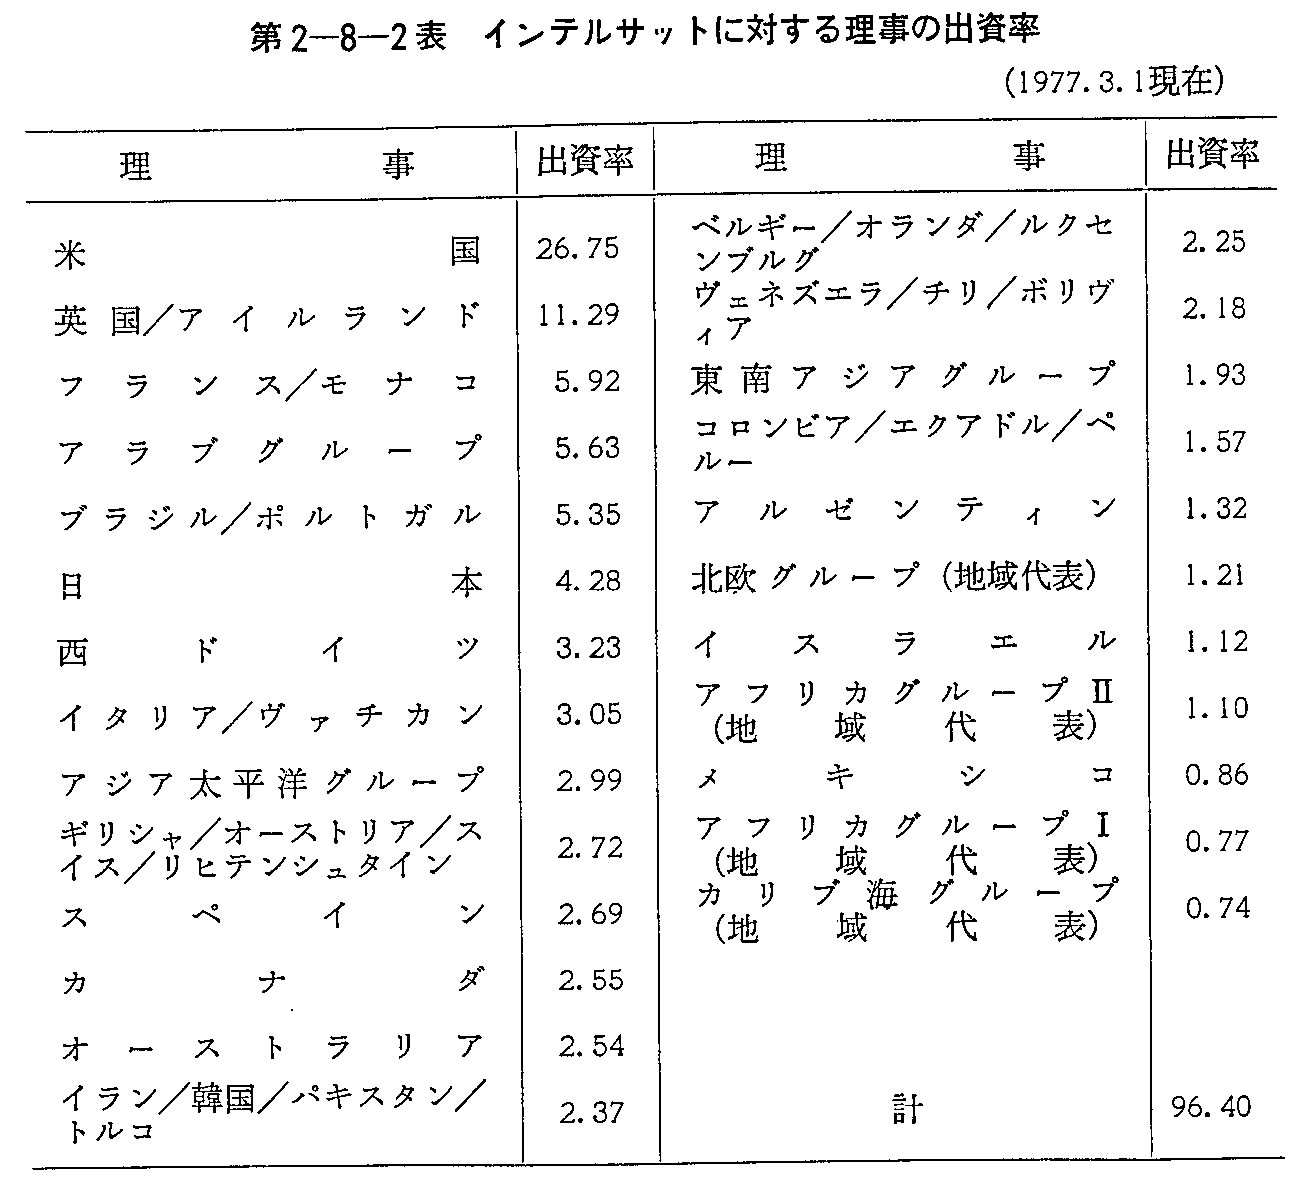 第2―8―2表　インテルサットに対する理事の出資率
(1977.3.1現在)
理事　出資率　理事　出資率
米国　26.75
英国/アイルランド　11.29
フランス/モナコ　5.92
アラブグループ　5.63
ブラジル/ポルトガル　5.35
日本　4.28
西ドイツ　3.23
イタリア/ヴァチカン　3.05
アジア太平洋グループ　2.99
ギリシャ/オーストリア/ス
イス/リヒテンシュタイン　2.72
スペイン　2.69
カナダ　2.55
オーストラリア　2.54
イラン/韓国/パキスタン/
トルコ　2.37
ベルギー/オランダ/ルクセ
ンブルグ　2.25
ヴェネズエラ/チリ/ボリヴ
ィア　2.18
東南アジアグループ　1.93
コロンビア/エクアドル/ペ
ルー　1.57
アルゼンティン　1.32
北欧グループ(地域代表)　1.21
イスラエル　1.12
アフリカグループⅡ
(地域代表)　1.10
メキシコ　0.86
アフリカグループⅠ
(地域代表)　0.77
カリブ海グループ
(地域代表)　0.74
計　96.40